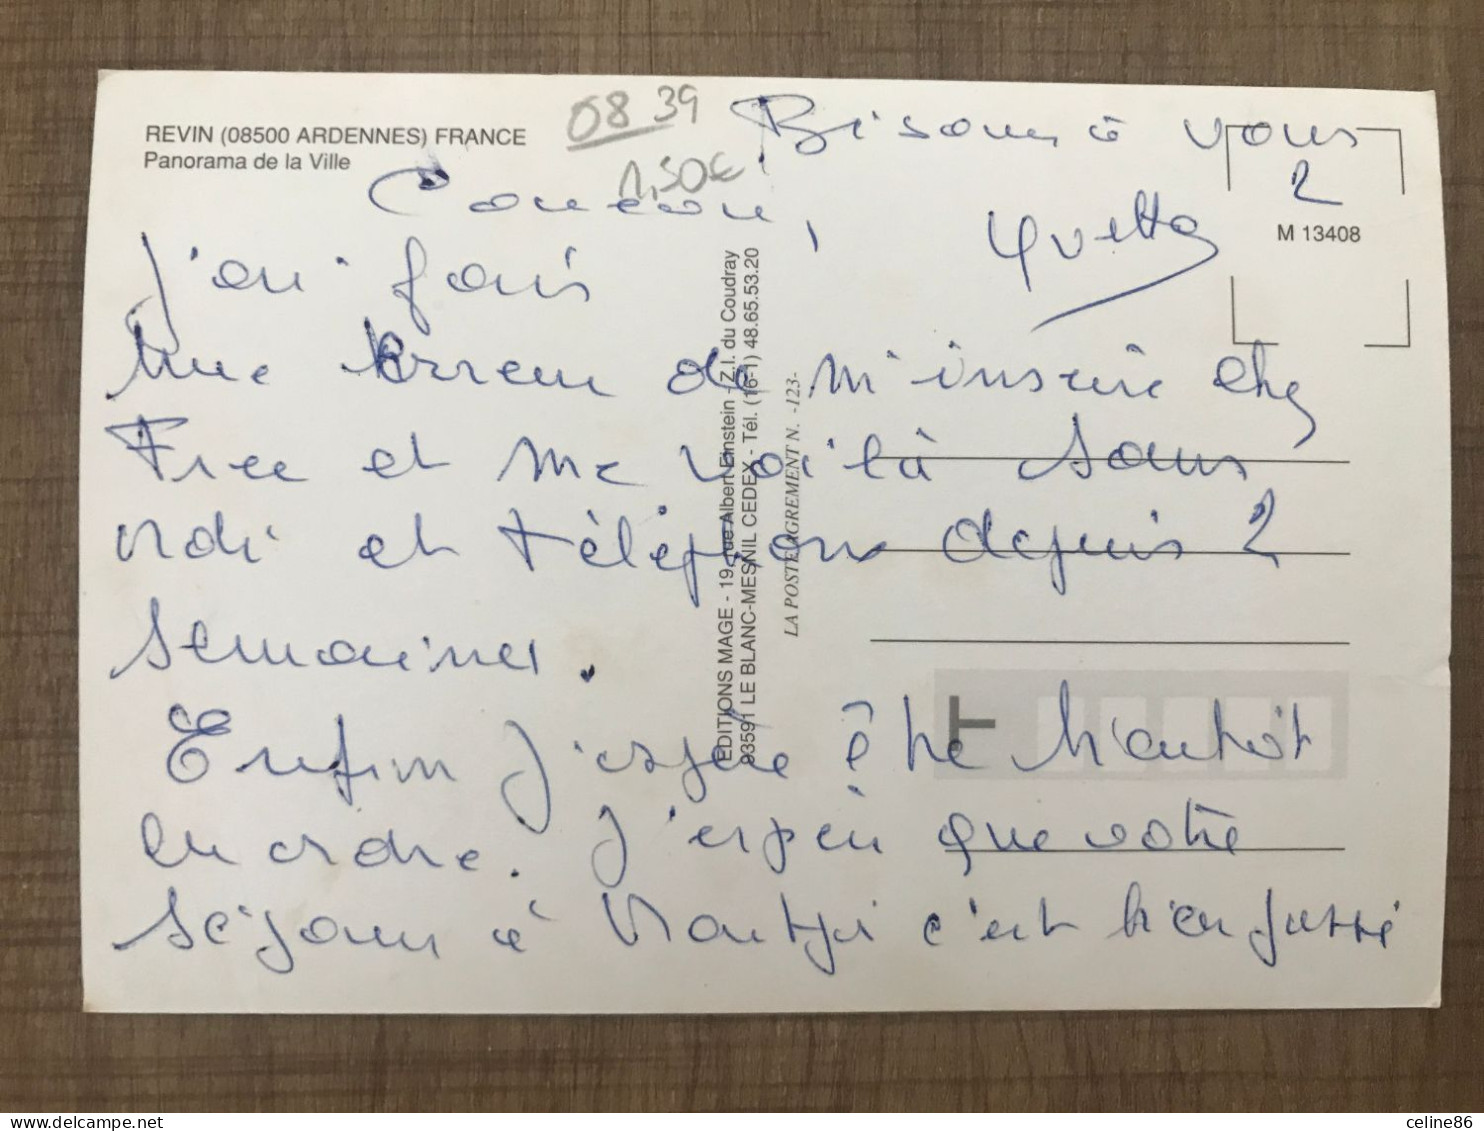 REVIN (08500 ARDENNES) FRANCE
Panorama de la Ville
08 39
1,50€
Coucou,
J'ai fais
Une Erreur de m'inscrire chez
Free et me voilà sans
et téléphone depuis 2
semaines.
Enfin j'espère être bientôt
en ordre. J'espère que votre
séjour à c'est bien passé
Bisous à vous
2
Yvette
M 13408
EDITIONS MAGE - 19, rue Albert Einstein - Z.I. du Coudray
93591 LE BLANC-MESNIL CEDEX - Tél. (16-1) 48.65.53.20
LA POSTE AGREMENT N. -123-
T
celine86